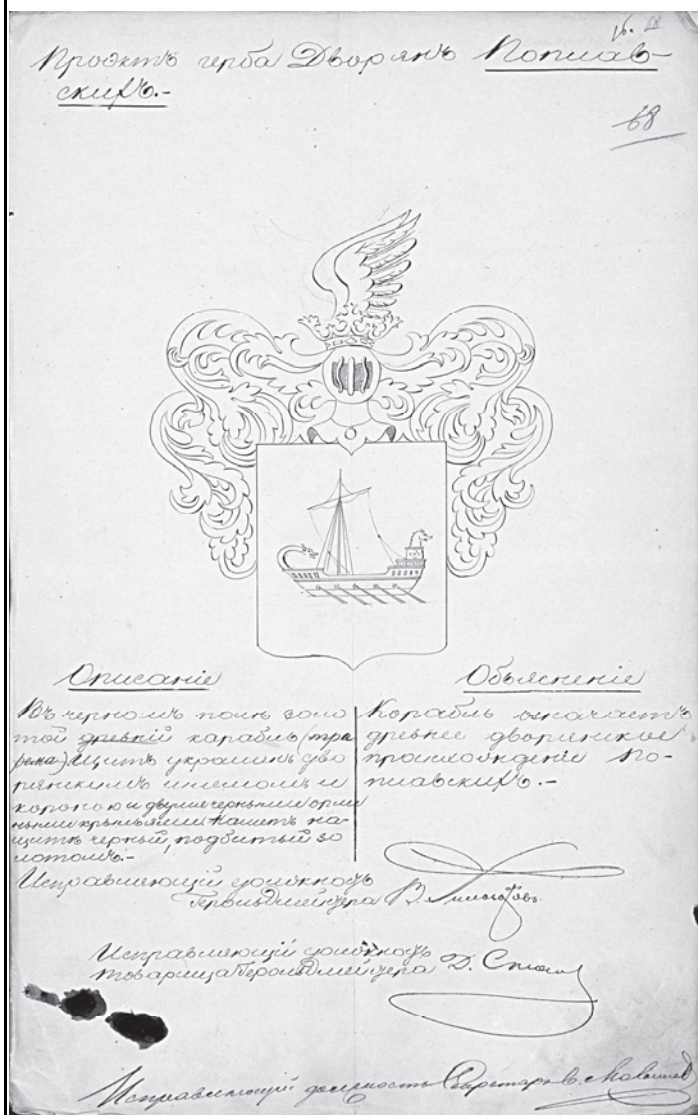 16.
Проэктъ герба Дворянъ Поплав-
скихъ.-
68
Описаніе
Въ черномъ полѣ золо
той древній карабль (три
рема) Щитъ украшенъ дво
рянскимъ шлемомъ и
короною и двумя черными орли
ными крыльями. Наметъ на
щитѣ черный, подбитый зо
лотомъ.-
Объясненіе
Корабль означаетъ
древнее дворянское
происхожденіе По-
плавскихъ.-
Исправляющій должность
Герольдмейстера В.
Исправляющій должность
товарища Герольдмейстера Д.
Исправляющій должность Секретаря